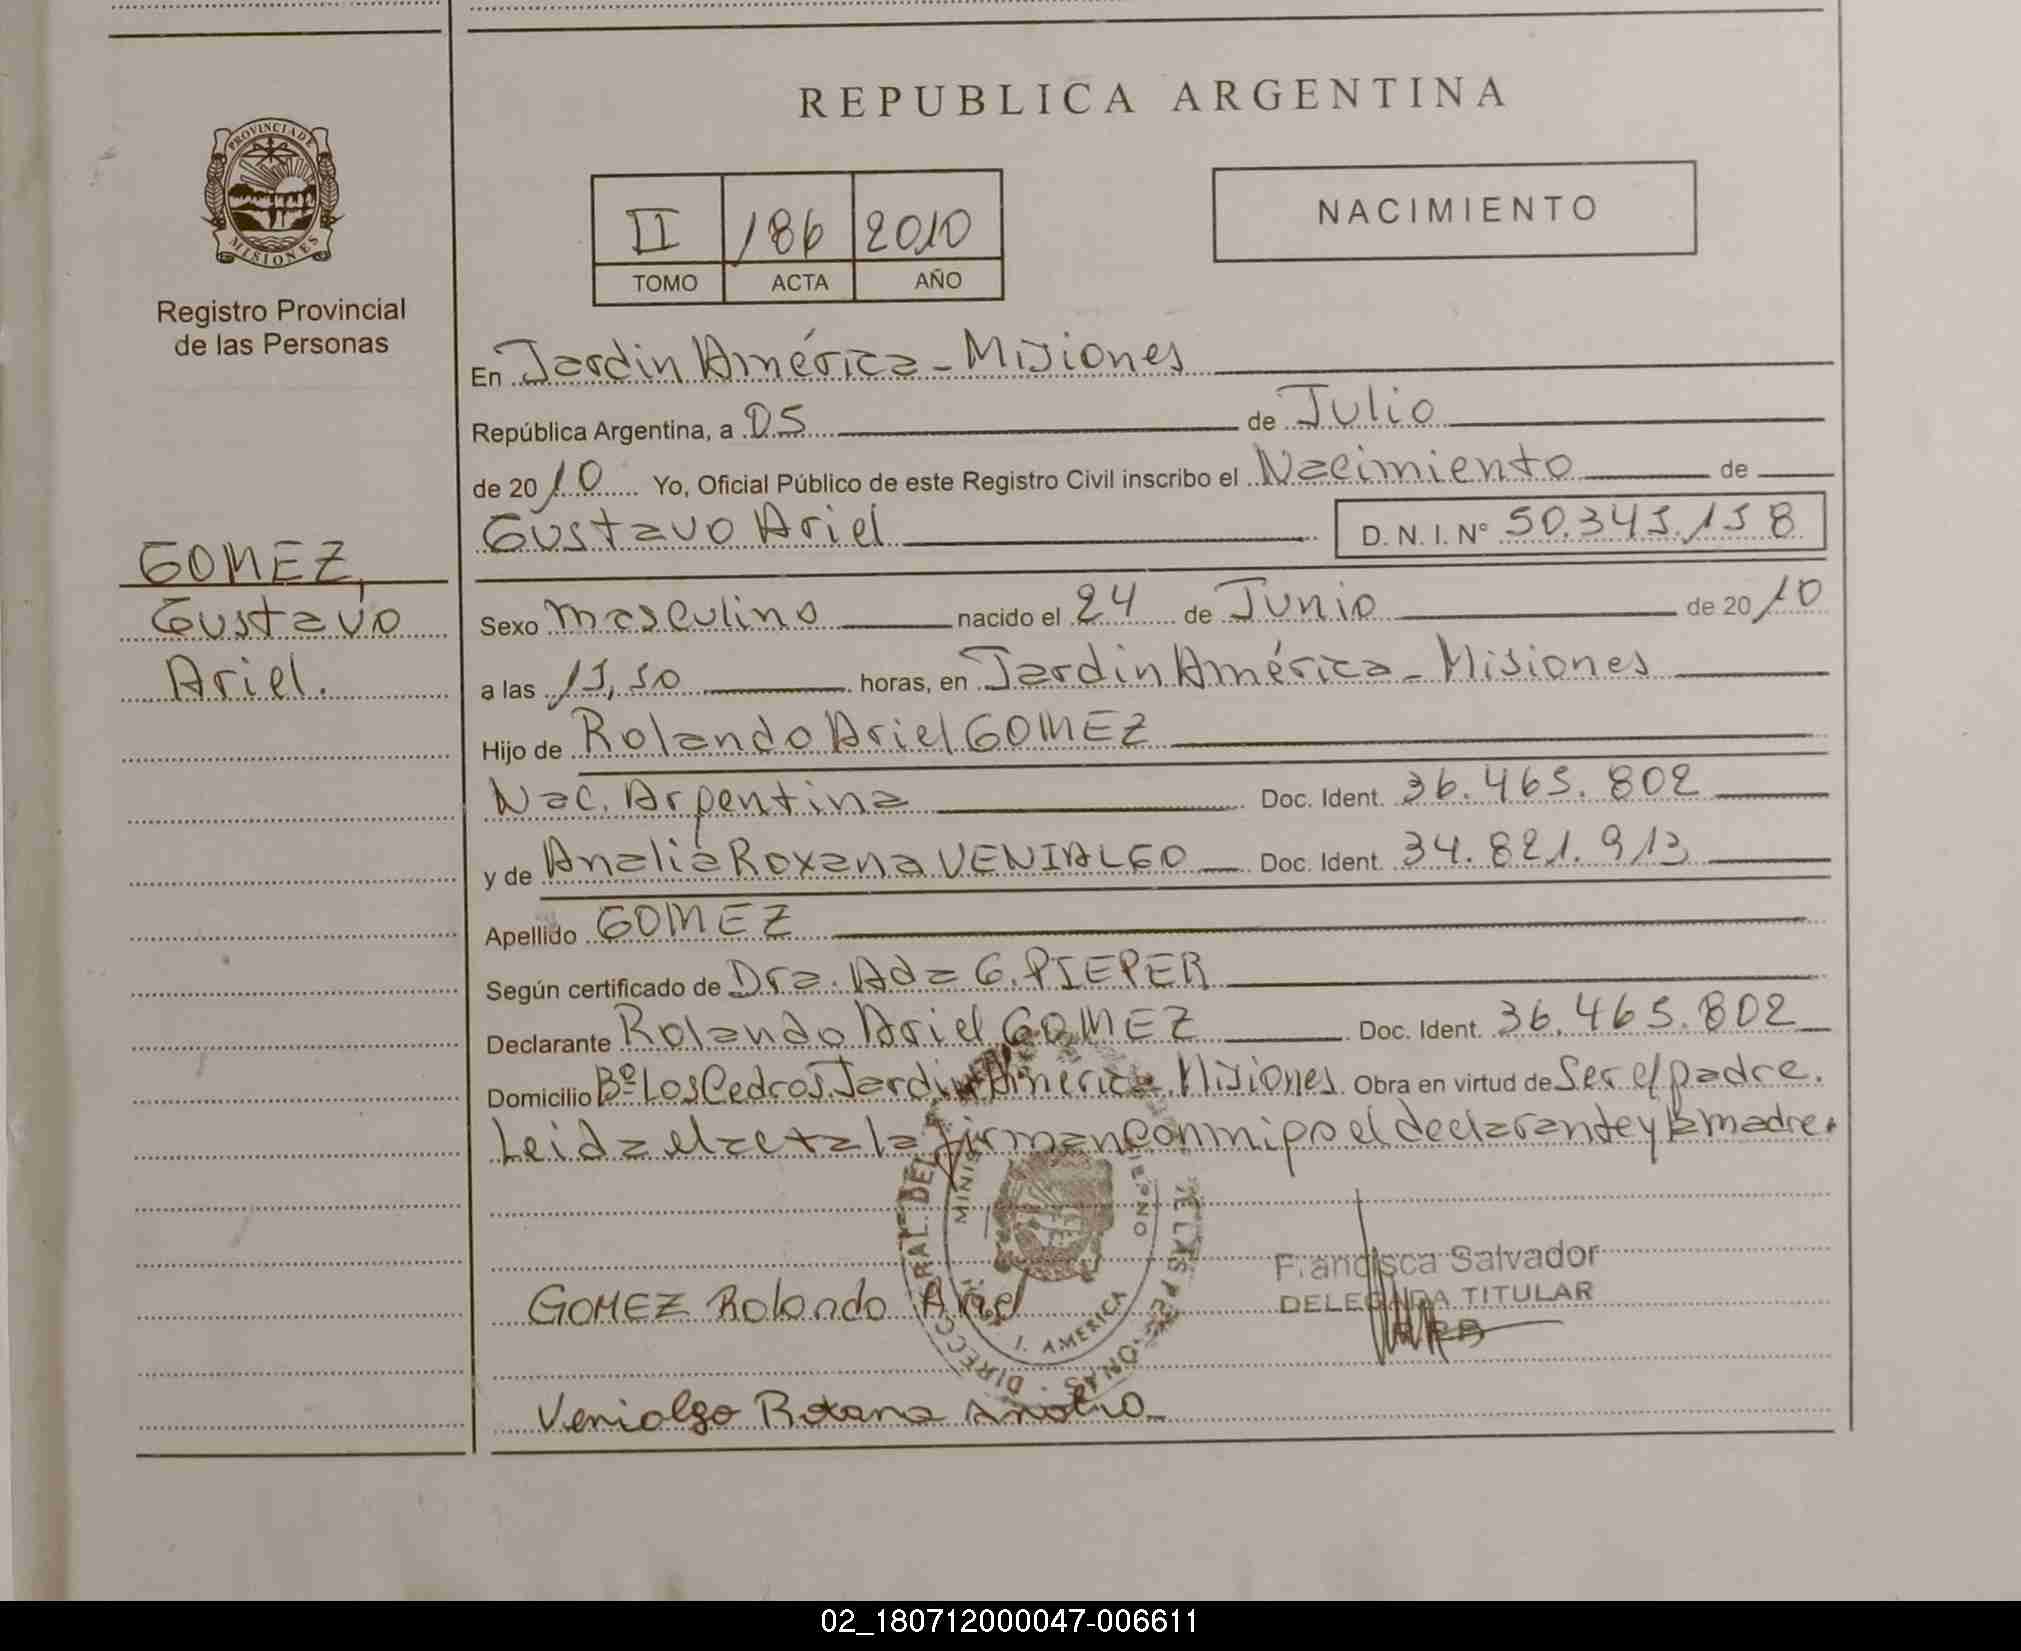 REPUBLICA ARGENTINA
PROVINCIA DE MISIONES
Registro Provincial
de las Personas
II 186 2010
TOMO ACTA AÑO
NACIMIENTO
En Jardin América - Misiones
República Argentina, a 05 de Julio
de 2010 Yo, Oficial Público de este Registro Civil inscribo el Nacimiento de
Gustavo Ariel D. N. I. Nº
GOMEZ,
Gustavo
Ariel.
Sexo Masculino nacido el 24 de Junio de 2010
a las horas, en Jardin América - Misiones
Hijo de Rolando Ariel GOMEZ
Nac. Argentina Doc. Ident. 36.465.802
y de Analia Roxana VENIALGO Doc. Ident. 34.821.913
Apellido GOMEZ
Según certificado de Dra. Ada G. PIEPER
Declarante Rolando Ariel GOMEZ Doc. Ident. 36.465.802
Domicilio Bº Los Cedros Jardin América. Misiones. Obra en virtud de Ser el padre.
Leida el acta la firman con migo el declarante y la madre.
GOMEZ Rolando Ariel
Francisca Salvador
DELEGADA TITULAR
Venialgo Roxana Analia
J. AMERICA
02_180712000047-006611